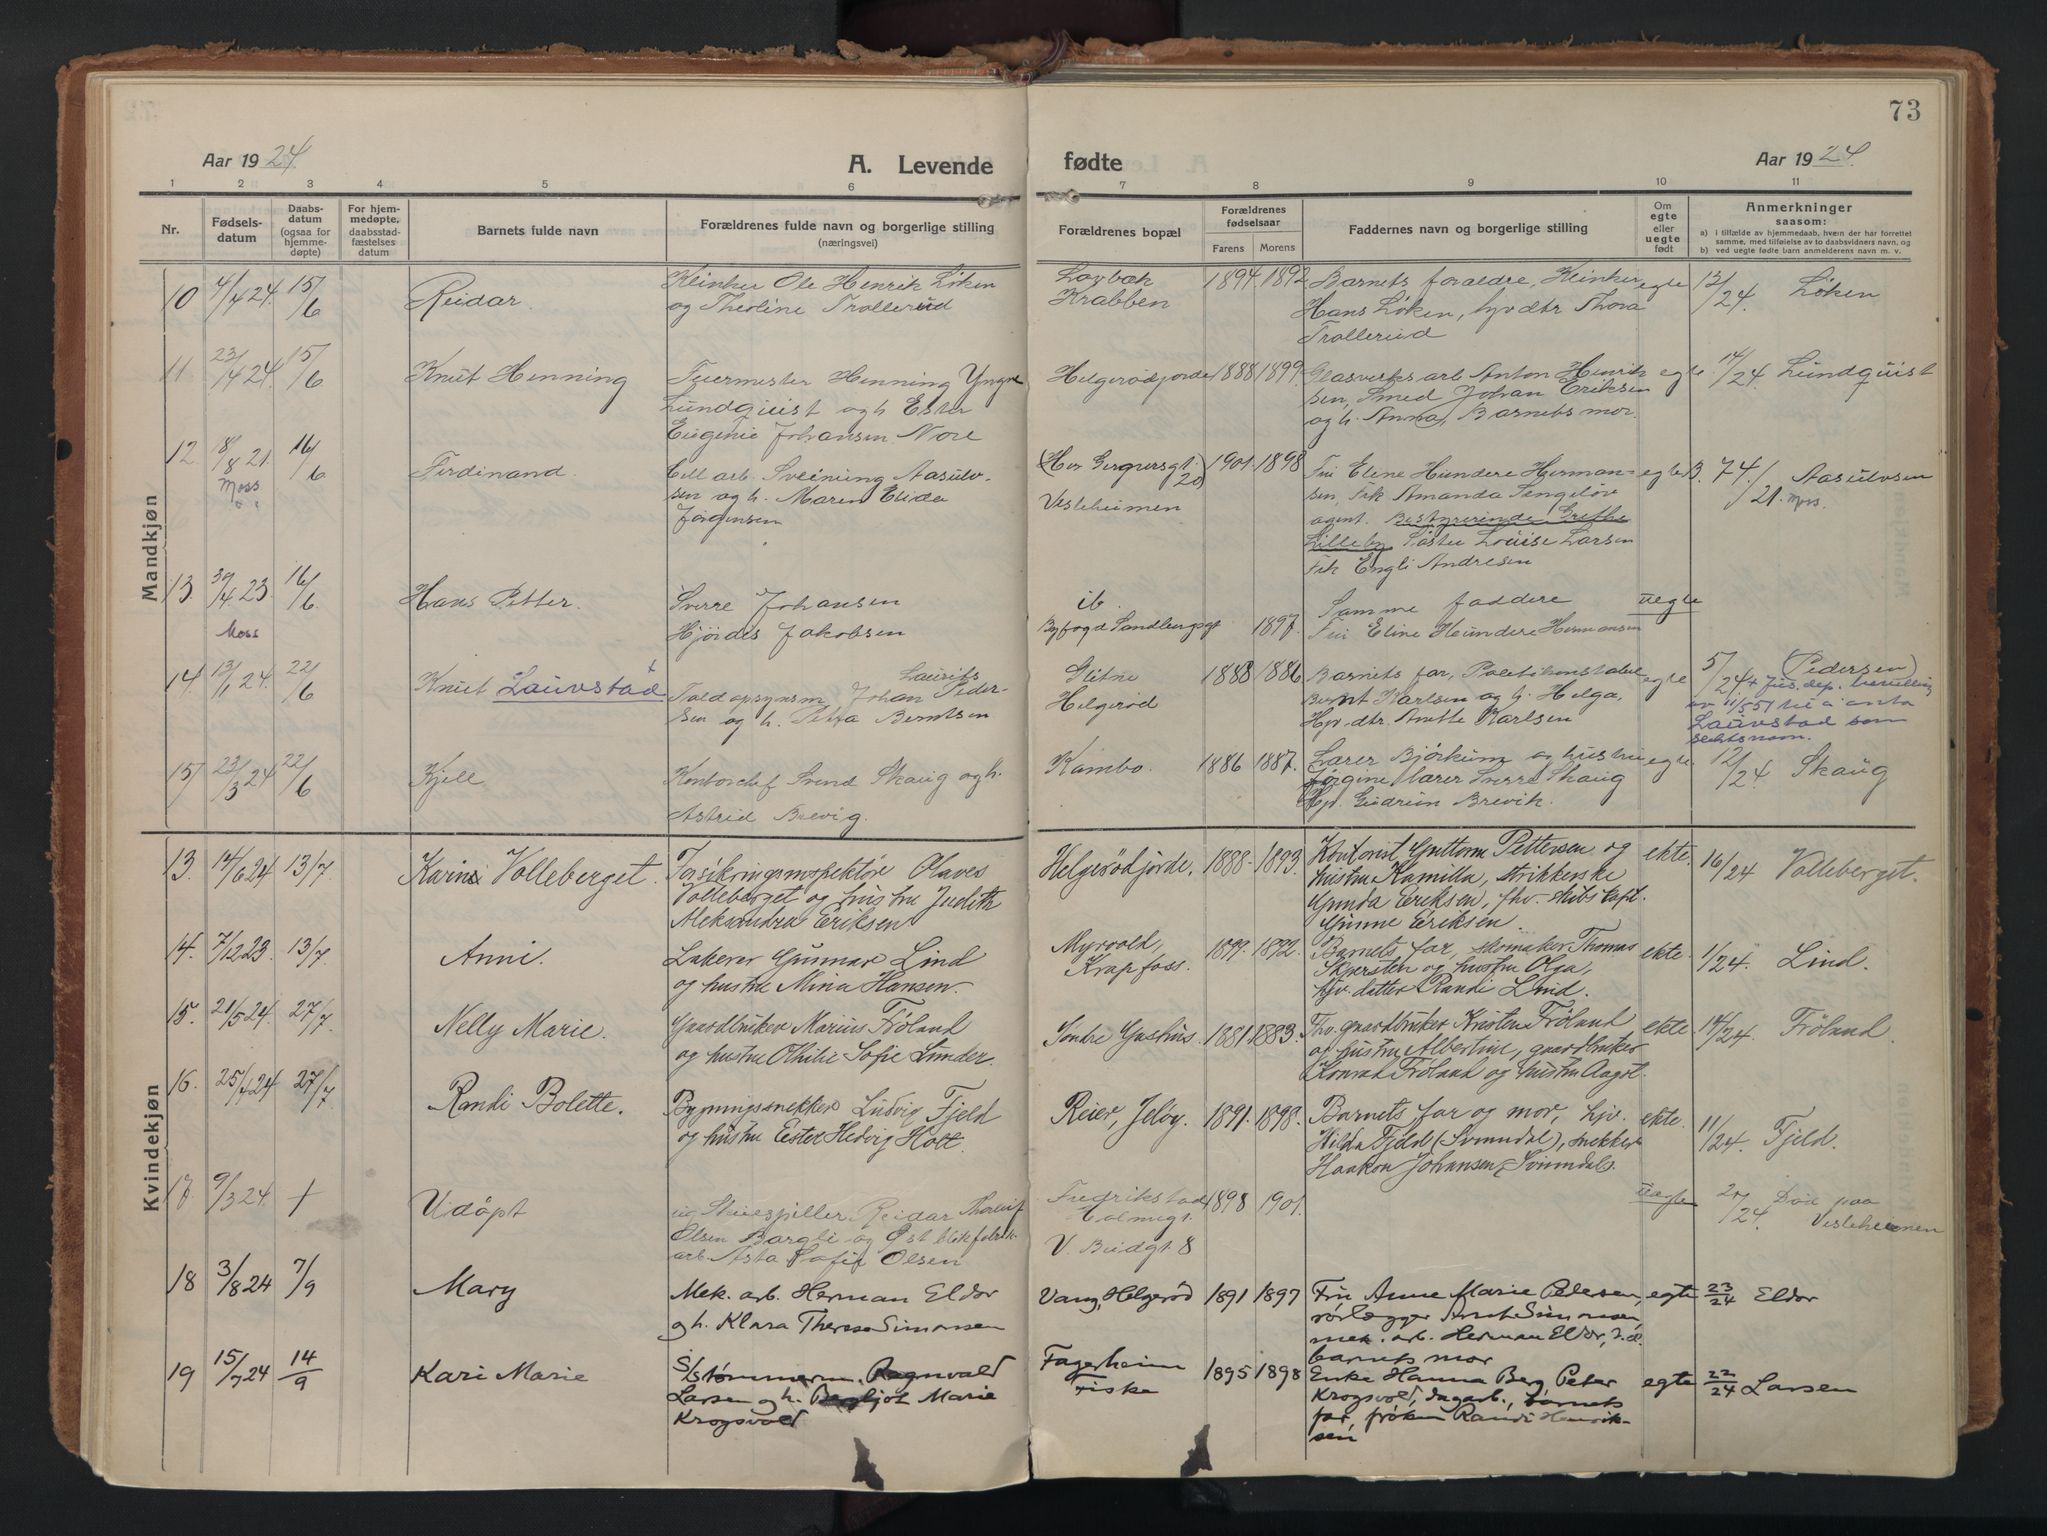 73
Aar 1924.
A. Levende
fødte
Aar 1924.
1 2 3 4 5 6 7 8 9 10 11
Nr.
Fødsels-
datum
Daabs-
datum
(ogsaa for
hjemme-
døpte)
For hjem-
medøpte,
daabsstad-
fæstelses
datum
Barnets fulde navn
Forældrenes fulde navn og borgerlige stilling
(næringsvei)
Forældrenes bopæl
Forældrenes
fødselsaar
Farens Morens
Faddernes navn og borgerlige stilling
Om
egte
eller
uegte
født
Anmerkninger
saasom:
a) i tilfælde av hjemmedaab, hvem der har forrettet
samme, med tilføielse av to daabsvidners navn, og
b) ved uegte fødte barn anmelderens navn m. v.
Mandkjøn
10 4/4 24. 15/6 Reidar.
Klinker Ole Henrik Løken
og Theoline Trollerud
Lovbæk
Krabben
1894. 1892
Barnets foraldre, Klinker
Hans Løken, hjvdtr Thora
Trollerud
egte 13/24. Løken
11 23/4 24. 15/6 Knut Henning
Feiermester Henning Yngve
Lundquist og h Ester
Eugenie Johansen Nore
Helgerødjorde 1888 1899.
Glasverks arb Anton Henrik
sen, Smed Johan Eriksen
og h. Anna, Barnets mor.
egte 14/24. Lundquist
12 18/8 21. Moss 16/6 Ferdinand.
Cell arb. Sveinung Aasulv-
sen og h. Maren Elida
Jørgensen
Vesleheimen
1901. 1898
Fru Eline Hundere Herman-
sen, Frk Amanda Sengeløv
agent. Bestyrerinde Grethe
Lilleby Søster Louise Larsen
Frk Engli Andresen
egte B. 74./21. Aasulvsen
Moss.
13. 30/4. 23 Moss 16/6. Hans Petter.
Sverre Johansen
Hjørdis Jakobsen
ib.
Byfogd Sandbergsgt 1897.
Samme faddere
Fru Eline Hundere Hermansen
uegte
14. 13/1 24. 22/6 Knut Lauvstad +
Toldopsynsm Johan Laurits Peder-
sen og h. Petra Berntsen
Glitne
Helgerød
1888 1886
Barnets far, Politikonstabel
Bernt Karlsen og h. Helga,
Hjv. dtr. Anette Karlsen
egte 5/24 (Pedersen)
+ Jus. dep. bevilling
av 11/5 51 til å anta
Lauvstad som
slektsnavn.
15 23/3 24 22/6 Kjell
Kontorchef Svend Skaug og h.
Astrid Brevig.
Kambo. 1886 1887.
Lærer Bjørkum og hustru
Jørgine, lærer Sverre Skaug
Hjv. Gudrun Brevik.
egte. 12/24. Skaug
Kvindekjøn
13. 14/6 24 13/7. Karin Volleberget.
Forsikringsinspektør Olaves
Volleberget og hustru Judith
Aleksandra Eriksen
Helgerødjorde. 1888- 1893.
Kontorist Guttorm Pettersen og
hustru Kamilla, strikkerske
Gunda Eriksen, fhv. skibskapt.
Gunne Eriksen.
ekte. 16/24 Volleberget.
14. 7/12 23. 13/7. Anni.
Lakerer Gunnar Lind
og hustru Mina Hansen.
Myrvold,
Krapfoss.
1899. 1892.
Barnets far, skomaker Thomas
Skjersten og hustru Olga,
hjv. datter Randi Lind.
ekte. 1/24. Lind.
15. 21/5 24. 27/7. Nelly Marie.
Gaardbruker Marius Frøland
og hustru Othilie Sofie Lunder.
Søndre Gashus. 1881. 1883.
Fhv. gaardbruker Kristen Frøland
og hustru Albertine, gaardbruker
Konrad Frøland og hustru Aagot.
ekte 14/24. Frøland.
16. 25/4 24 27/7 Randi Bolette.
Bygningssnekker Ludvig Fjeld
og hustru Ester Hedvig Holt.
Reier, Jeløy. 1891. 1898.
Barnets far og mor, hjv.
Hilda Fjeld (Svinndal), snekker
Haakon Johansen, Svinndal.
ekte. 11/24. Fjeld.
17 9/3 24 + Udøpt
ug Skuespiller Reidar Thorleif
Olsen Bargli og Øst blikfabrik-
arb. Asta Sofie Olsen
Fredrikstad
V. Brudgt. 8
1898 1901.
uegte /24. Død paa
Vesleheimen
18 3/8 24 7/9 Mary
Mek. arb. Herman Eldor
og h. Klara Therese Simonsen
Vang, Helgerød 1891 1897
Fru Anne Marie Pedersen,
rørlægger Arnt Simonsen,
mek. arb. Herman Eldor, s.d.
barnets mor
egte 23/24 Eldor
19 15/7 24 14/9 Kari Marie
S/stømmerm. Ragnvald
Larsen og h. Bergljot Marie
Krogsvold
Fagerheim
Fiske
1895 1898
Enke Hanna Berg, Peter
Krogsvold, dagarb., barnets
far, frøken Randi Henrik-
sen
egte 22/24 Larsen